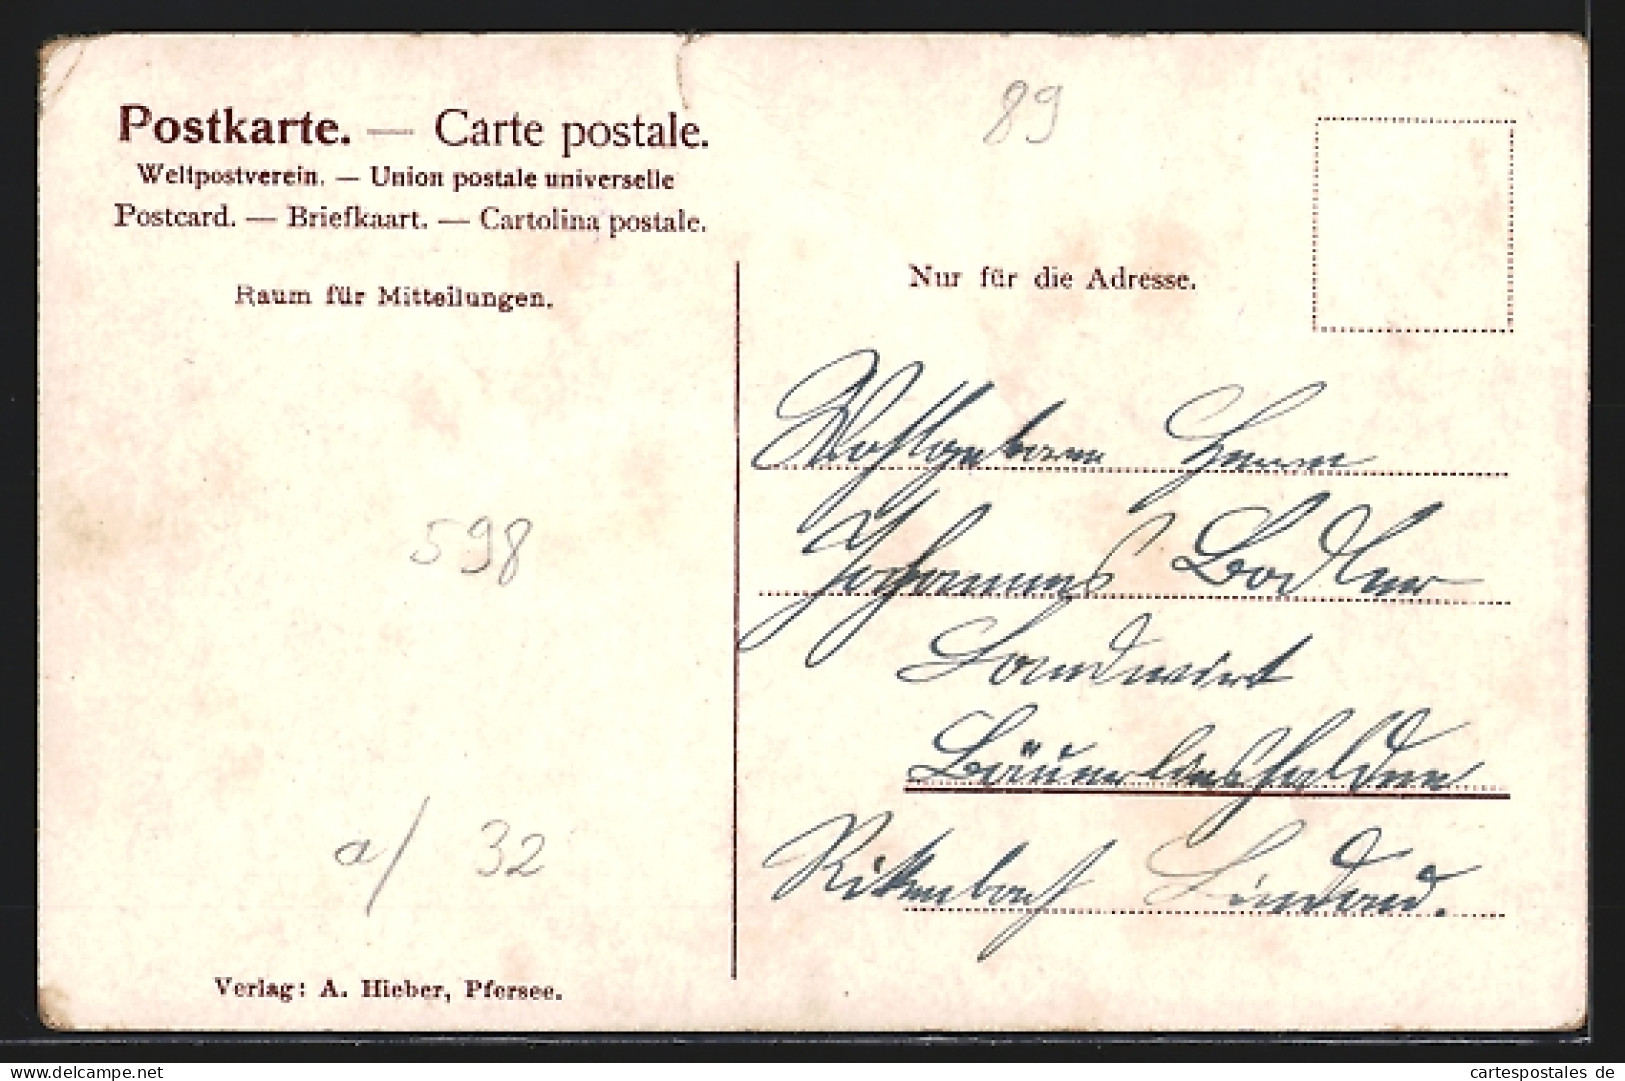 Postkarte. — Carte postale.
Weltpostverein. — Union postale universelle
Postcard. — Briefkaart. — Cartolina postale.
Raum für Mitteilungen.
89
Nur für die Adresse.
Wohlgeboren Herrn
Johannes Bodler
Landwirt
598
a/ 32
Lindau.
Verlag: A. Hieber, Pfersee.
cartespostales de